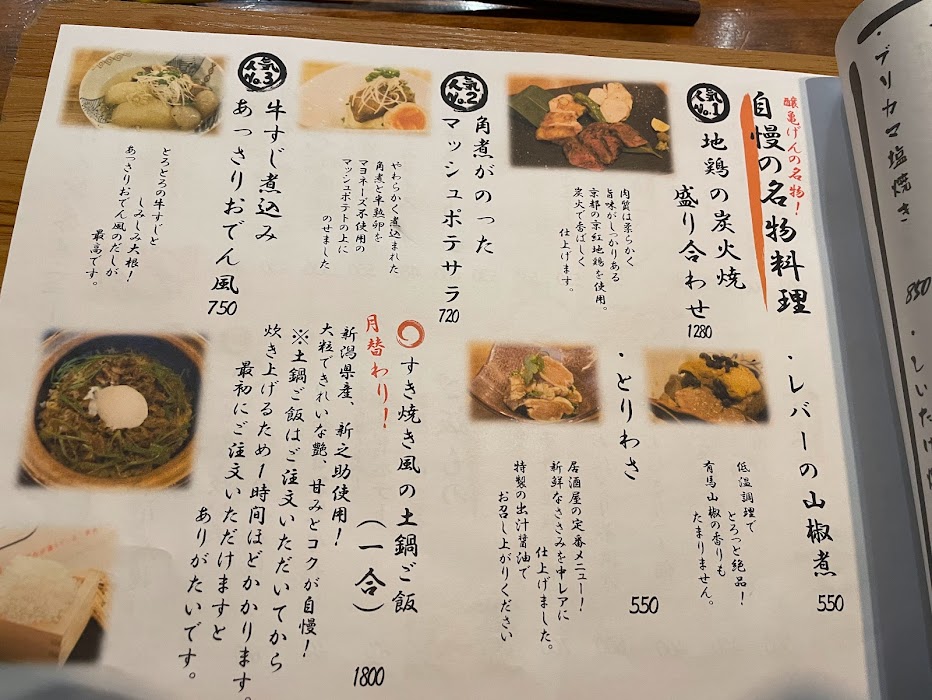 ・ブリカマ塩焼き
850
・しいたけ
醸亀げんの名物！
自慢の名物料理
人気No.1
地鶏の炭火焼
盛り合わせ
1280
肉質は柔らかく
旨味がしっかりある
京都の京紅地鶏を使用。
炭火で香ばしく
仕上げます。
人気No.2
角煮がのった
マッシュポテサラ
720
やわらかく煮込まれた
角煮と半熟卵を
マヨネーズ不使用の
マッシュポテトの上に
のせました
人気No.3
牛すじ煮込み
あっさりおでん風
750
とろとろの牛すじと
しみしみ大根！
あっさりおでん風のだしが
最高です。
・レバーの山椒煮
550
低温調理で
とろっと絶品！
有馬山椒の香りも
たまりません。
・とりわさ
550
居酒屋の定番メニュー！
新鮮なささみを中レアに
仕上げました。
特製の出汁醤油で
お召し上がりください
すき焼き風の土鍋ご飯
（一合）
1800
月替わり！
新潟県産、新之助使用！
大粒できれいな艶、甘みとコクが自慢！
※土鍋ご飯はご注文いただいてから
炊き上げるため1時間ほどかかります。
最初にご注文いただけますと
ありがたいです。